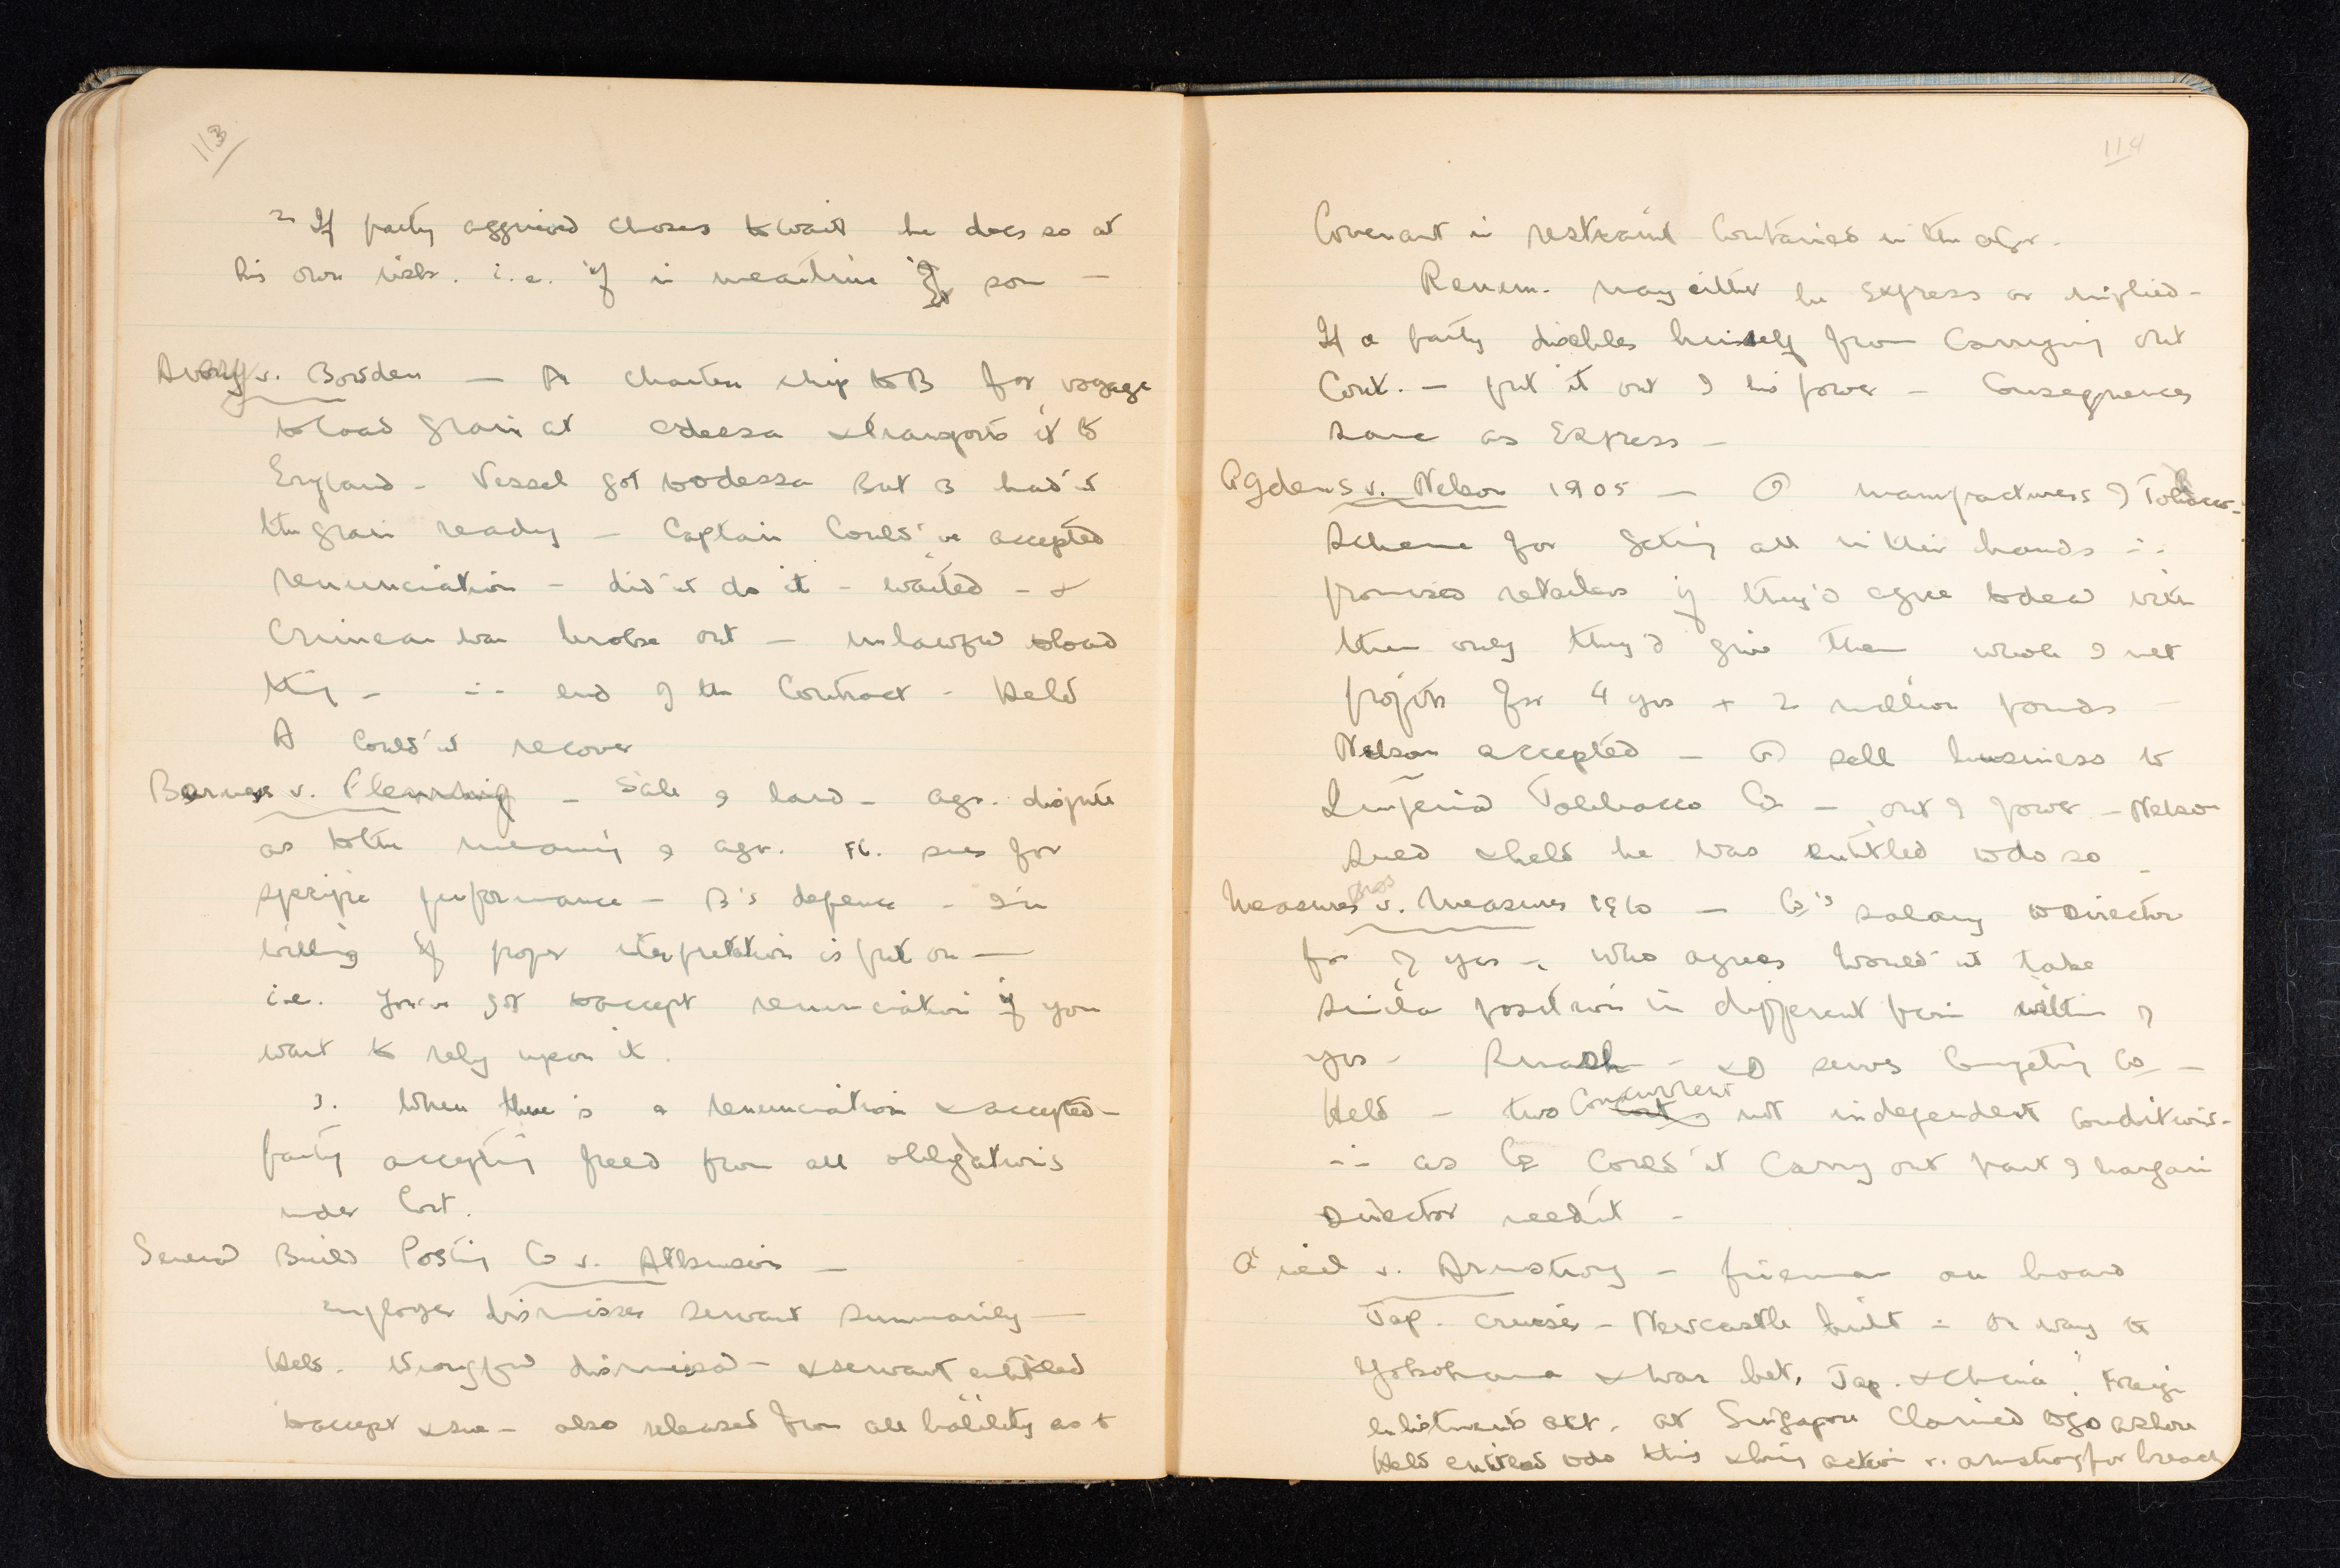 113
2. If party aggrieved choses to wait he does so at
his own risk. i.e. if in meantime
Avory v. Bowden — A charters ship to B for voyage
to load grain at Odessa & transports it to
England - Vessel got to Odessa But B had'nt
the grain ready — Captain could've accepted
renunciation - did'nt do it - waited - &
Crimean war broke out — unlawful to load
ship - ∴ end of the Contract - Held
A could'nt recover
Berners v. Flemming — Sale of land — agr. dispute
as to the meaning of agr. Fl. sues for
specific performance — B's defence - I'm
willing if proper interpretation is put on —
i.e. You've got to accept renunciation if you
want to rely upon it.
3. When there is a renunciation & accepted —
party accepting freed from all obligations
under Cont.
General Build Posting Co v. Atkinson —
Employer dismisses servant summarily —
Held. Wrongful dismissal — & servant entitled
to accept & sue — also released from all liability as to
114
Covenant in restraint contained in the agr.
Renun. may either be Express or implied —
If a party disables himself from carrying out
Cont. — put it out of his power — Consequences
same as Express —
Ogdens v. Nelson 1905 — O manufacturers of Tobacco -
Scheme for getting all in their hands ∴
promised retailers if they'd agree to deal with
them only they'd give them whole of net
profits for 4 yrs + 2 million pounds —
Nelson accepted — O sell business to
Imperial Tobbacco Co — out of power — Nelson
sued & held he was entitled to do so —
Measures Bros v. Measures 1910 — Co's salary to Director
for 7 yrs - who agrees would'nt take
similar position in different firm within 7
yrs - & D serves Competing Co —
Held — two Concurrent not independent conditions -
∴ as Co could'nt carry out part of bargain
Director need'nt —
O'Neil v. Armstrong — fireman on board
Jap. cruiser — Newcastle built - on way to
Yokohama & war bet. Jap. & China ∴ Foreign
enlistments act. at Singapore Claimed to go ashore
Held entitled to do this & bring action v. Armstrong for breach